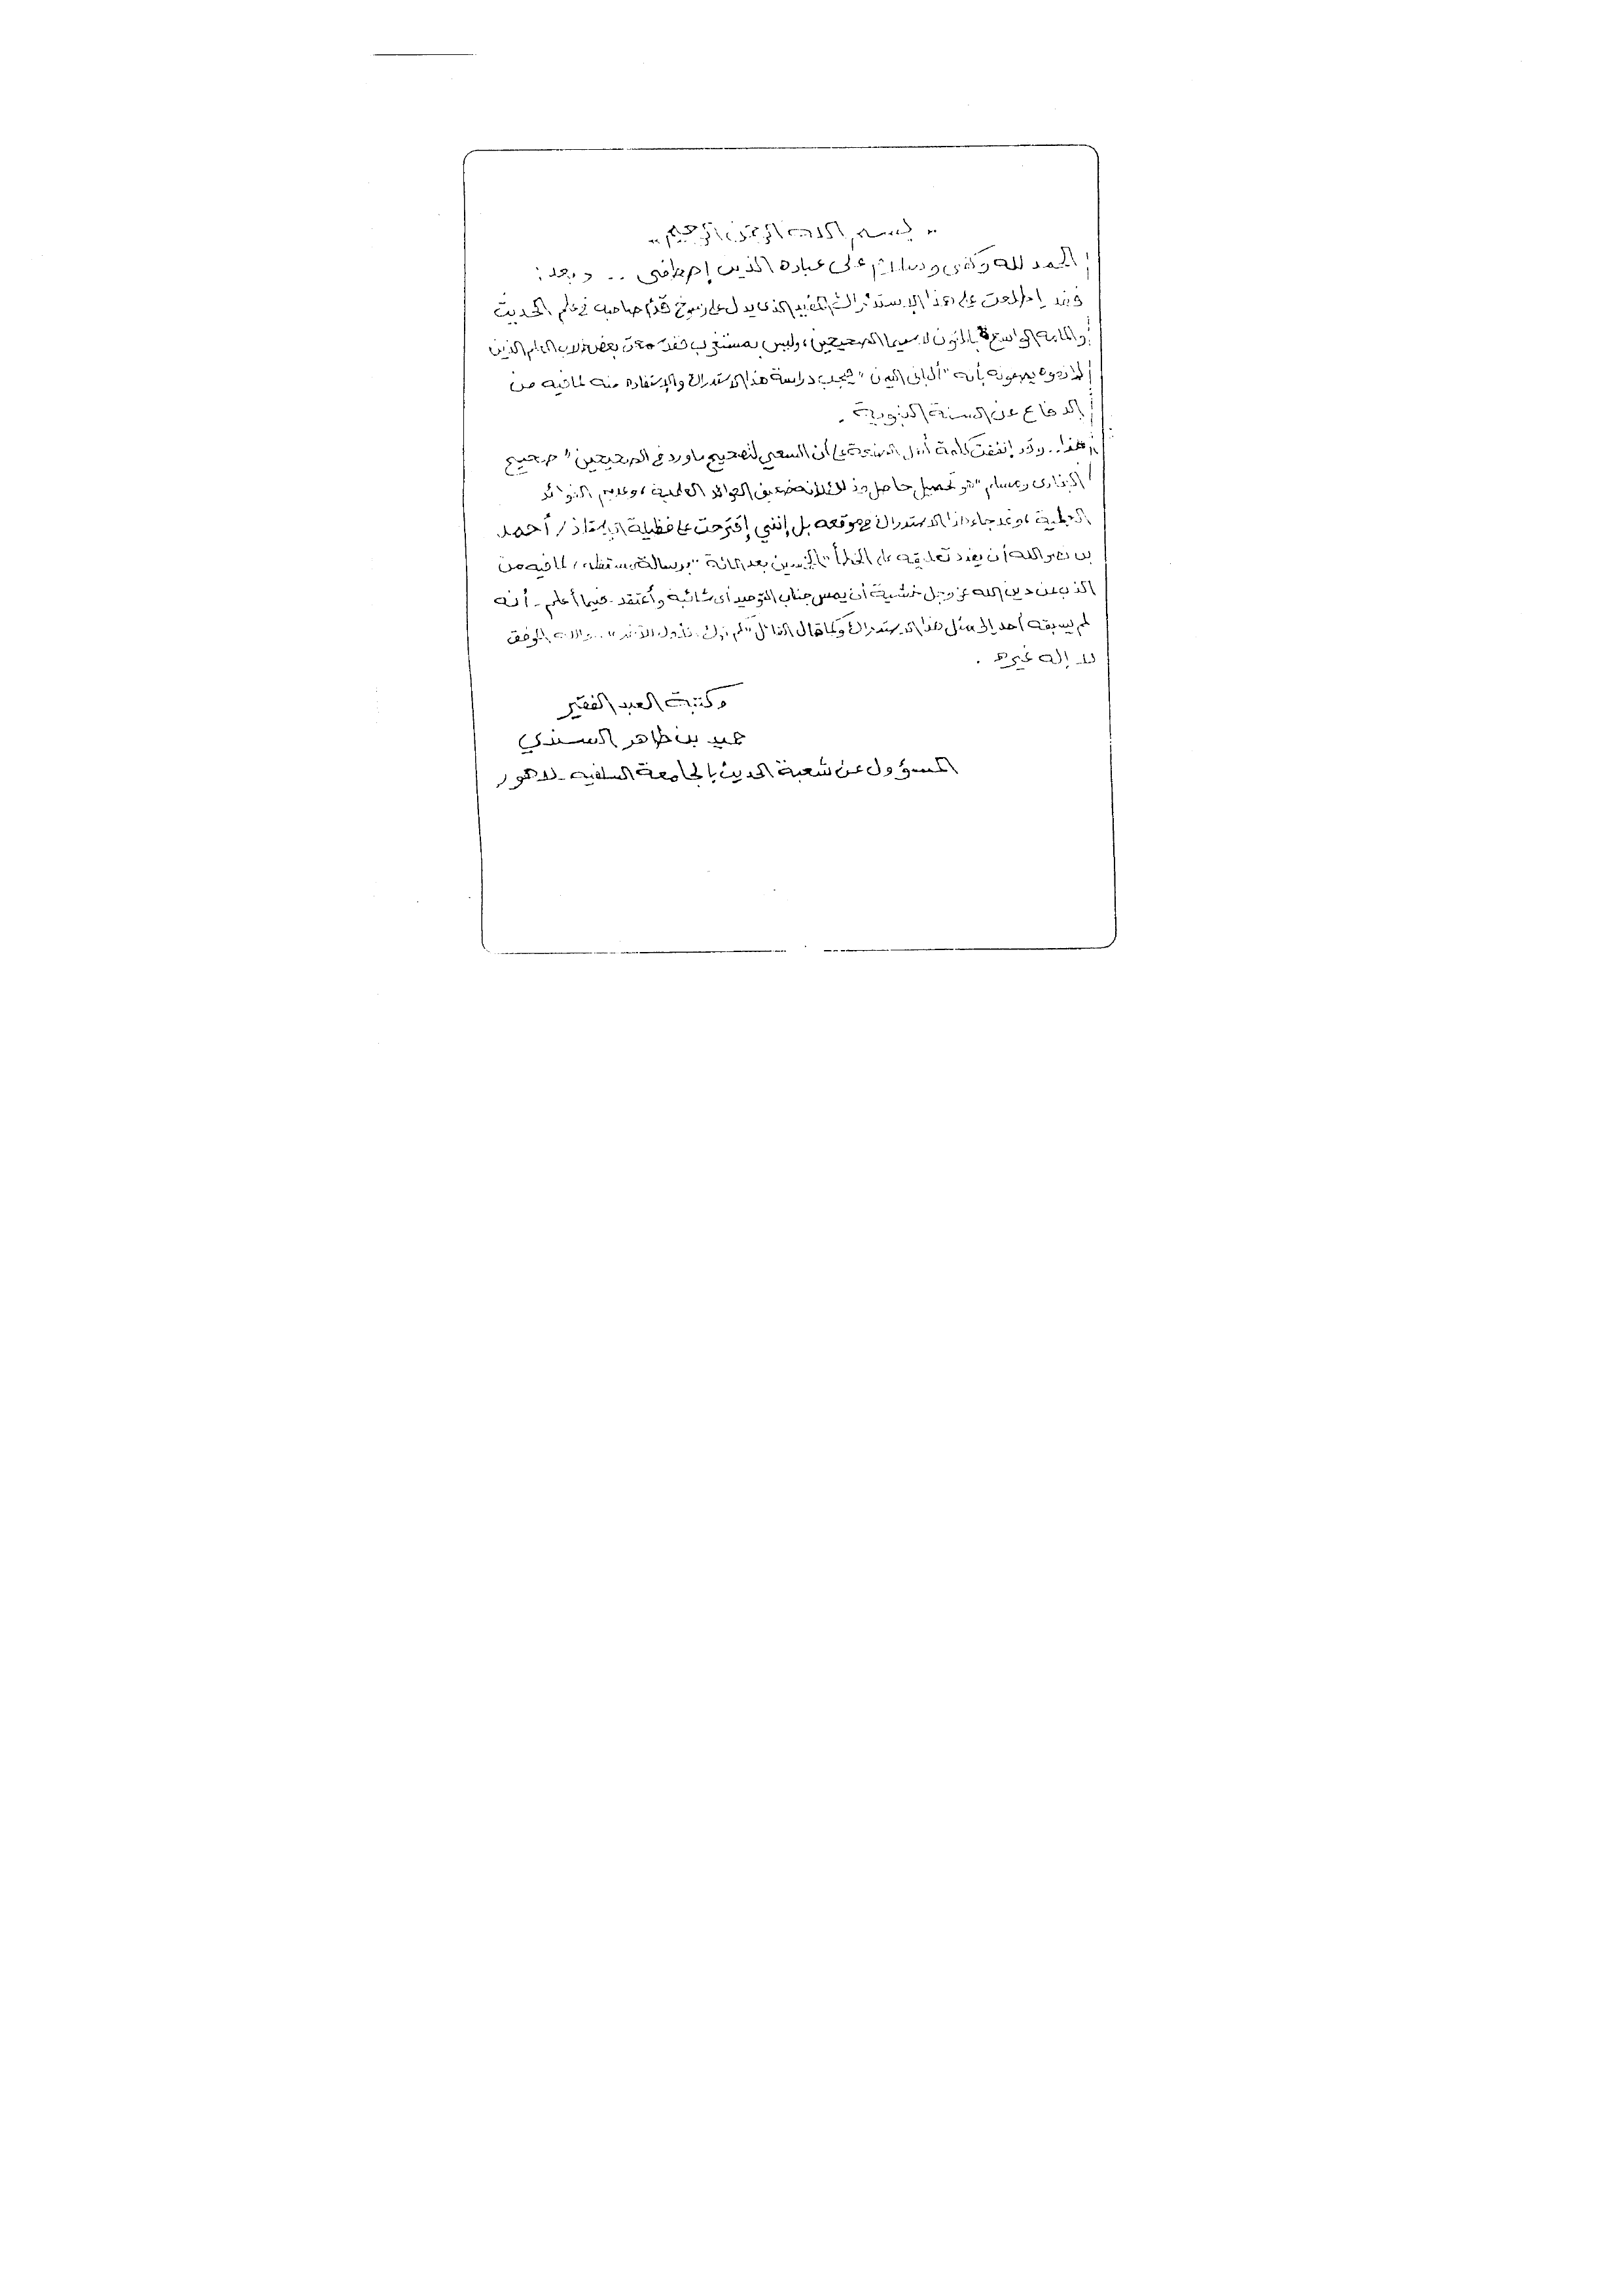 " بسم الله الرحمن الرحيم "
الحمد لله وكفى وسلام على عباده الذين إصطفى .. وبعد :
فقد إطلعت على هذا الإستدراك المفيد الذى يدل على رسوخ قدم صاحبه في علم الحديث
وإلمامه الواسع بالمتون لا سيما الصحيحين ، وليس بمستغرب فقد سمعت بعض طلاب العلم الذين
يصفونه بأنه " ألبانى اليمن " فيجب دراسة هذا الاستدراك والإستفاده منه لمافيه من
الدفاع عن السنة النبوية .
هذا .. وقد إتفقت كلمة أهل على أن السعي لتصحيح ماورد في الصحيحين " صحيح
البخارى ومسلم " هو تحصيل حاصل وذلك لأنه ضعيف العوائد العلمية ، وعديم الفوائد
وقد جاء هذا الاستدراك في موقعه بل إنني إقترحت على فظيلة الأستاذ / أحمد
بن نصر الله أن يفرد تعليقه على الخطأ " الخمسين بعد المائة " برسالة مستقله ، لمافيه من
الذب عن دين الله عز وجل خشية أن يمس جناب التوحيد أى شائبة وأعتقد - فيما أعلم - أنه
لم يسبقه أحد إلى مثل هذا الاستدراك وكما قال القائل " كم ترك الأول للآخر " .. والله الموفق
لا إله غيره .
وكتبه العبد الفقير
بن طاهر السندي
المسؤول عن شعبة الحديث بالجامعة السلفيه - لاهور